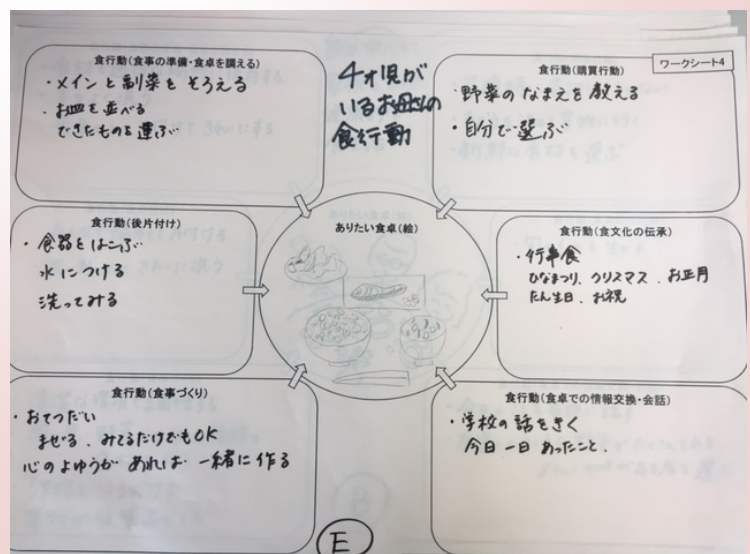 ワークシート4
4才児が
いるお母さんの
食行動
食行動(食事の準備・食卓を調える)
・メインと副菜を そろえる
・お皿を並べる
できたものを運ぶ
食行動(購買行動)
・野菜のなまえを教える
・自分で選ぶ
食行動(後片付け)
・食器をはこぶ
水につける
洗ってみる
ありたい食卓(絵)
食行動(食文化の伝承)
・行事食
ひなまつり、クリスマス、お正月
たん生日、お祝
食行動(食事づくり)
・おてつだい
まぜる、みてるだけでもOK
心のよゆうが あれば 一緒に作る
食行動(食卓での情報交換・会話)
・学校の話をきく
今日一日 あったこと、
E